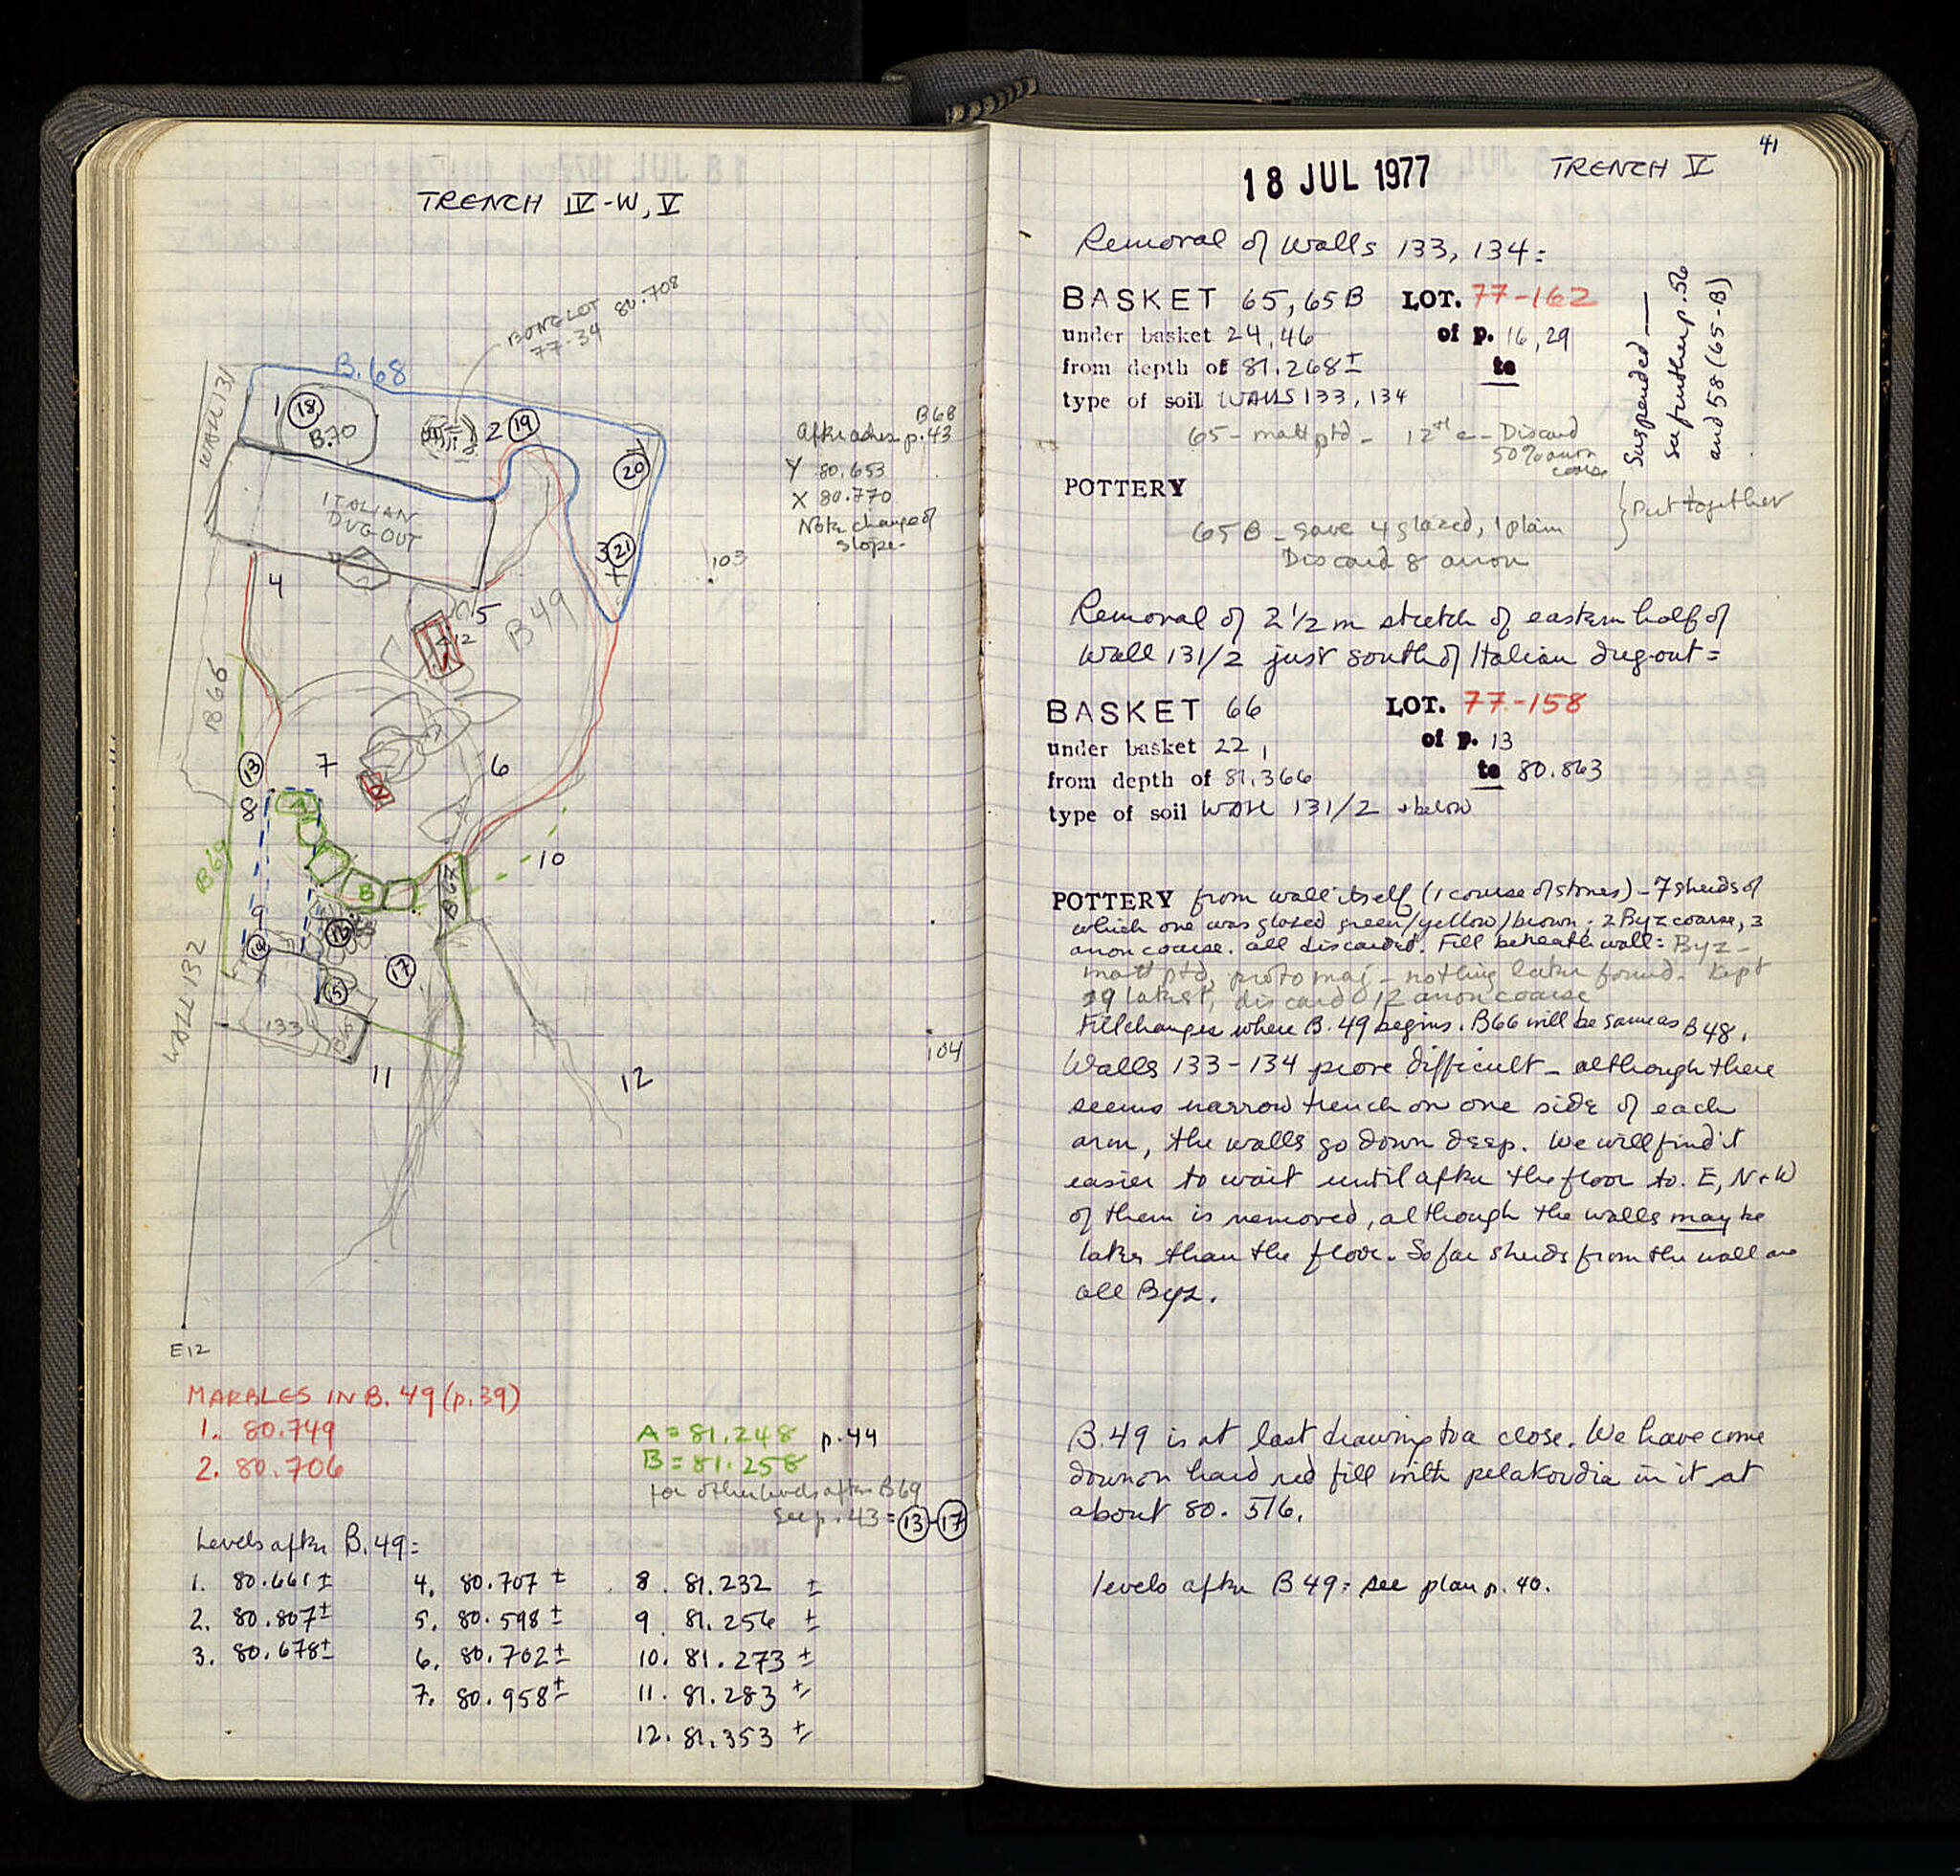 TRENCH IV-W, V
BONE LOT 80.708
77-34
B.68
WALL 131
1 (18)
B.70
2 (19)
(20)
B68
After ashes p.43
Y 80.653
X 80.770
Note change of
slope-
ITALIAN
DUG-OUT
3 (21)
X
103
4
5
B49
B66
(13)
7
6
8
A
10
B69
B
B.67
9
(14)
(16)
(17)
(15)
WALL 132
133
104
11
12
E12
MARBLES IN B.49 (p.39)
1. 80.749
2. 80.706
A = 81.248 p.44
B = 81.258
for other levels after B69
see p. 43 = (13)-(17)
Levels after B.49:
1. 80.661 ±
2. 80.807 ±
3. 80.678 ±
4. 80.707 ±
5. 80.598 ±
6. 80.702 ±
7. 80.958 ±
8. 81.232 ±
9. 81.256 ±
10. 81.273 ±
11. 81.283 ±
12. 81.353 ±
41
18 JUL 1977 TRENCH V
Removal of Walls 133, 134:
BASKET 65, 65B LOT. 77-162
under basket 24, 46 of p. 16, 29
from depth of 81.268± to
type of soil WALLS 133, 134
Suspended —
see further p. 56
and 58 (65-B)
65 - matt ptd - 12th c - Discard
50% anon
coarse
POTTERY
65B - Save 4 glazed, 1 plain
Discard 8 anon
} Put together
Removal of 2 1/2 m stretch of eastern half of
Wall 131/2 just south of Italian dug-out:
BASKET 66 LOT. 77-158
under basket 22, of p. 13
from depth of 81.366 to 80.863
type of soil Wall 131/2 + below
POTTERY from wall itself (1 course of stones) - 7 sherds of
which one was glazed green/yellow/brown; 2 Byz coarse, 3
anon coarse. all discarded. Fill beneath wall: Byz -
matt ptd, proto maj - nothing later found. Kept
29 latest, discard 12 anon coarse
Fill changes where B.49 begins. B66 will be same as B48.
Walls 133-134 prove difficult - although there
seems narrow trench on one side of each
arm, the walls go down deep. We will find it
easier to wait until after the floor to E, N + W
of them is removed, although the walls may be
later than the floor. So far sherds from the wall are
all Byz.
B.49 is at last drawing to a close. We have come
down on hard red fill with pelakoudia in it at
about 80.516.
levels after B49: see plan p. 40.